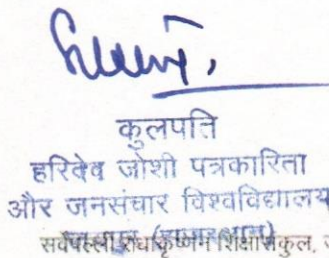 कुलपति
हरिदेव जोशी पत्रकारिता
और जनसंचार विश्वविद्यालय
जयपुर (राजस्थान)
सर्वपल्ली राधाकृष्णन शिक्षा संकुल,